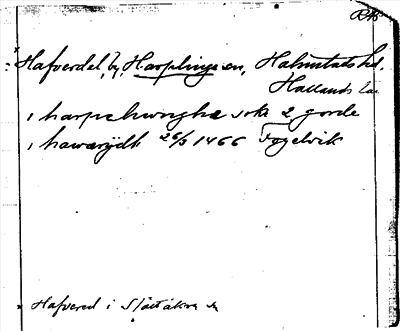 RAÄ
Hafverdel, by, Harplinge sn, Halmstads hd.
Hallands län
i harpelwngha sokn 2 gorde
i hawærydh 26/3 1466 Fogelvik
* Hafvered i Slättåkra sn